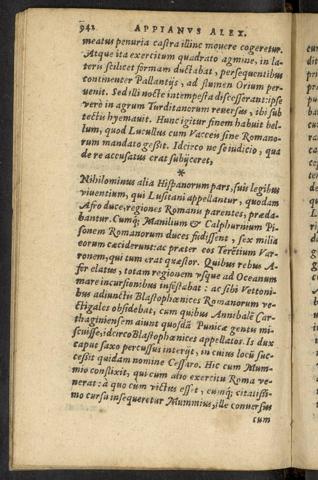 942 APPIANVS ALEX.
meatus penuria castra illinc mouere cogeretur.
Atque ita exercitum quadrato agmine, in la-
teris scilicet formam ductabat, persequentibus
continenter Pallantijs, ad flumen Orium per-
uenit. Sed illi nocte intempesta discesserant: ipse
verò in agrum Turditanorum reuersus, ibi sub
tectis hyemauit. Hunc igitur finem habuit bel-
lum, quod Lucullus cum Vacceis sine Romano-
rum mandato gessit. Idcirco ne se iudicio, qua
de re accusatus erat subijceret,
*
Nihilominus alia Hispanorum pars, suis legibus
viuentium, qui Lusitani appellantur, quodam
Afro duce, regiones Romanis parentes, præda-
bantur. Cumq; Manilium & Calphurnium Pi-
sonem Romanorum duces fudissent, sex milia
eorum cæciderunt: ac præter eos Terētium Var-
ronem, qui tum erat quæstor. Quibus rebus A-
fer elatus, totam regionem vsque ad Oceanum
mare incursionibus infestabat: ac sibi Vettoni-
bus adiunctis Blastophœnices Romanorum ve-
ctigales obsidebat, cum quibus Annibalē Car-
thaginiensem aiunt quosdā Punicæ gentis mi-
scuisse, idcirco Blastophœnices appellatos. Is dux
caput saxo percussus interijt, in cuius locū suc-
cessit quidam nomine Cessaro. Hic cum Mum-
mio conflixit, qui cum alio exercitu Roma ve-
nerat: à quo cum victus esset, cumq; citatissi-
mo cursu insequeretur Mummius, ille conuersus
cum